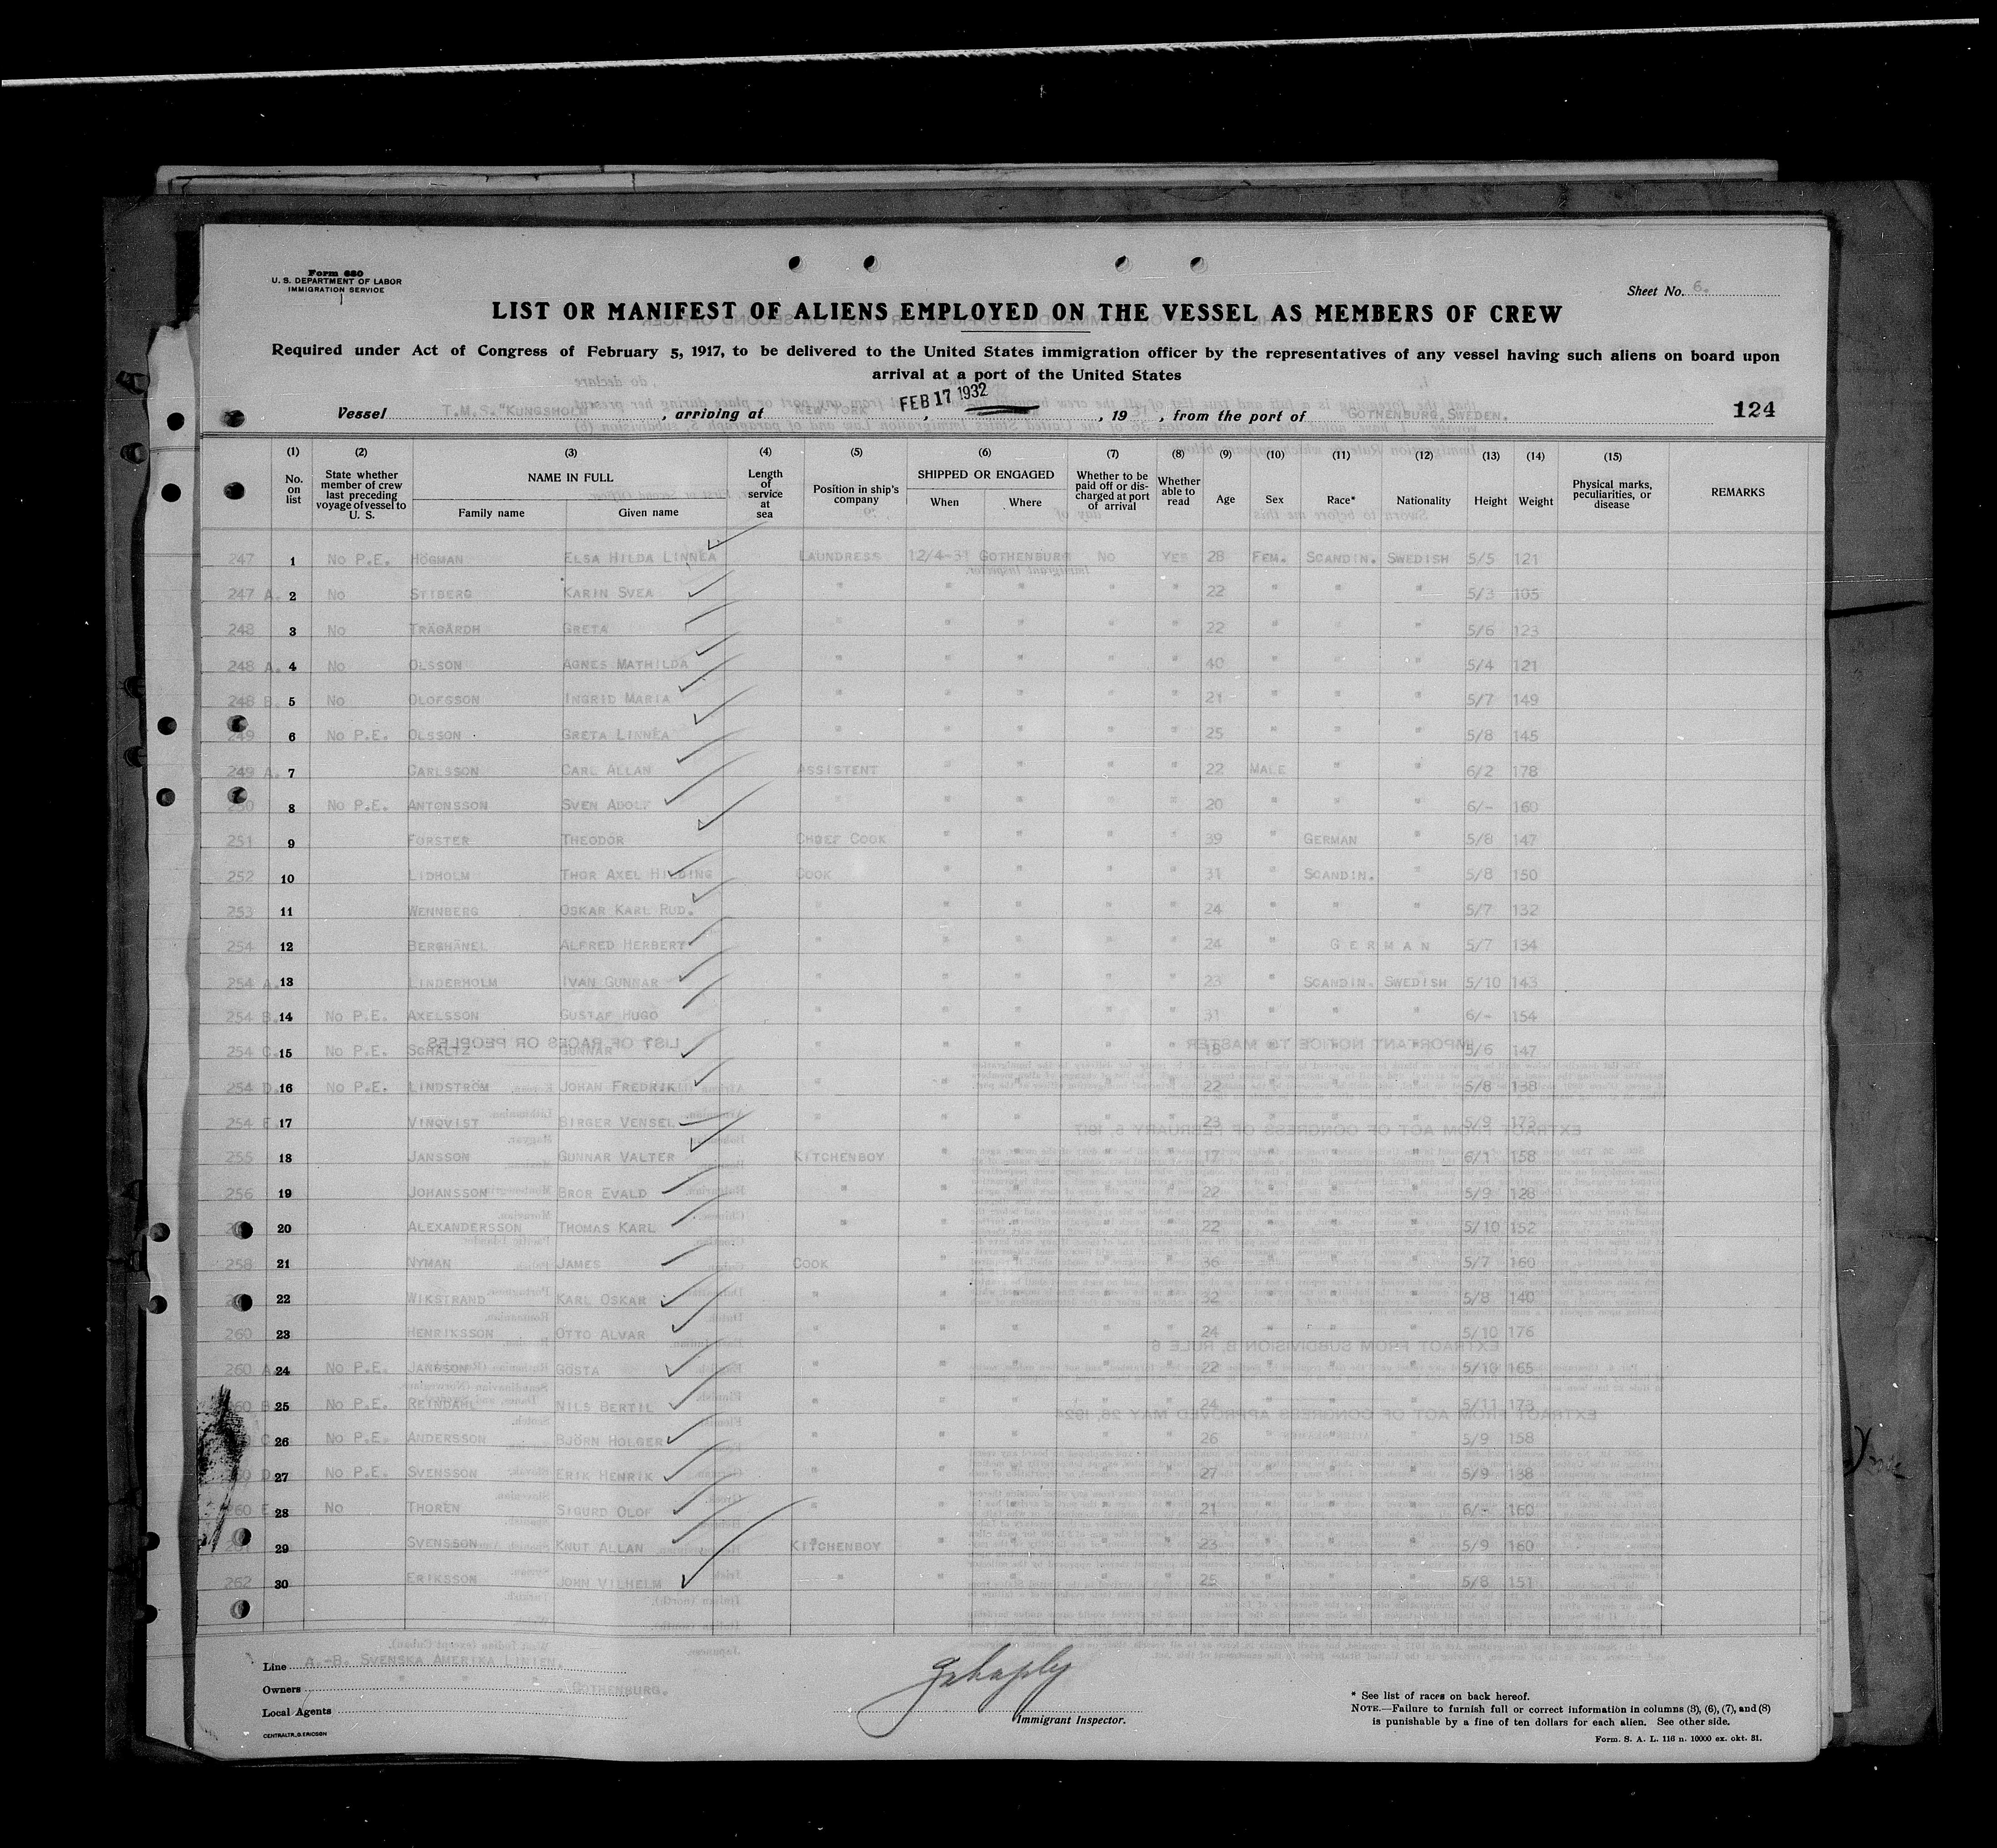 Form 680
U. S. DEPARTMENT OF LABOR
IMMIGRATION SERVICE
Sheet No. 6.
LIST OR MANIFEST OF ALIENS EMPLOYED ON THE VESSEL AS MEMBERS OF CREW
Required under Act of Congress of February 5, 1917, to be delivered to the United States immigration officer by the representatives of any vessel having such aliens on board upon
arrival at a port of the United States
Vessel T.M.S. "KUNGSHOLM", arriving at NEW YORK, FEB 17 1932, 19 31, from the port of GOTHENBURG, SWEDEN. 124
(1) (2) (3) (4) (5) (6) (7) (8) (9) (10) (11) (12) (13) (14) (15)
No. on list
State whether member of crew last preceding voyage of vessel to U. S.
NAME IN FULL
Family name Given name
Length of service at sea
Position in ship's company
SHIPPED OR ENGAGED
When Where
Whether to be paid off or discharged at port of arrival
Whether able to read
Age Sex Race* Nationality Height Weight
Physical marks, peculiarities, or disease
REMARKS
247 1 No P.E. HÖGMAN ELSA HILDA LINNÉA LAUNDRESS 12/4-31 GOTHENBURG No YES 28 FEM. SCANDIN. SWEDISH 5/5 121
247 A. 2 No STIBERG KARIN SVEA " " " " " 22 " " " 5/3 105
248 3 No TRÄGÅRDH GRETA " " " " " 22 " " " 5/6 123
248 A. 4 No OLSSON AGNES MATHILDA " " " " " 40 " " " 5/4 121
248 B. 5 No OLOFSSON INGRID MARIA " " " " " 21 " " " 5/7 149
249 6 No P.E. OLSSON GRETA LINNÉA " " " " " 25 " " " 5/8 145
249 A. 7 CARLSSON CARL ALLAN ASSISTENT " " " " 22 MALE " " 6/2 178
250 8 No P.E. ANTONSSON SVEN ADOLF " " " " " 20 " " " 6/- 160
251 9 FÖRSTER THEODOR CHIEF COOK " " " " 39 " GERMAN " 5/8 147
252 10 LIDHOLM THOR AXEL HILDING COOK " " " " 31 " SCANDIN. " 5/8 150
253 11 WENNBERG OSKAR KARL RUD. " " " " " 24 " " " 5/7 132
254 12 BERGHÄNEL ALFRED HERBERT " " " " " 24 " GERMAN 5/7 134
254 A. 13 LINDERHOLM IVAN GUNNAR " " " " " 23 " SCANDIN. SWEDISH 5/10 143
254 B. 14 No P.E. AXELSSON GUSTAF HUGO " " " " " 31 " " " 6/- 154
254 C. 15 No P.E. SCHÄLTZ GUNNAR " " " " " " " " 5/6 147
254 D. 16 No P.E. LINDSTRÖM JOHAN FREDRIK " " " " " 22 " " " 5/8 138
254 E. 17 VINQVIST BIRGER VENSEL " " " " " 23 " " " 5/9 173
255 18 JANSSON GUNNAR VALTER KITCHENBOY " " " " 17 " " " 6/1 158
256 19 JOHANSSON BROR EVALD " " " " " 22 " " " 5/9 128
20 ALEXANDERSSON THOMAS KARL " " " " " 22 " " " 5/10 152
258 21 NYMAN JAMES COOK " " " " 36 " " " 5/7 160
22 WIKSTRAND KARL OSKAR " " " " " 32 " " " 5/8 140
260 23 HENRIKSSON OTTO ALVAR " " " " " 24 " " " 5/10 176
260 A. 24 No P.E. JANSSON GÖSTA " " " " " 22 " " " 5/10 165
260 B. 25 No P.E. REINDAHL NILS BERTIL " " " " " 24 " " " 5/11 173
C. 26 No P.E. ANDERSSON BJÖRN HOLGER " " " " " 26 " " " 5/9 158
D. 27 No P.E. SVENSSON ERIK HENRIK " " " " " 27 " " " 5/9 138
260 E. 28 No THORÉN SIGURD OLOF " " " " " 21 " " " 6/- 160
29 SVENSSON KNUT ALLAN KITCHENBOY " " " " 23 " " " 5/9 160
262 30 ERIKSSON JOHN VILHELM " " " " " 25 " " " 5/8 151
Line A.-B. SVENSKA AMERIKA LINIEN.
Owners " " " GOTHENBURG.
Local Agents
Immigrant Inspector.
CENTRALTR., G. ERICSON
* See list of races on back hereof.
NOTE.—Failure to furnish full or correct information in columns (3), (6), (7), and (8)
is punishable by a fine of ten dollars for each alien. See other side.
Form. S. A. L. 116 n. 10000 ex. okt. 31.